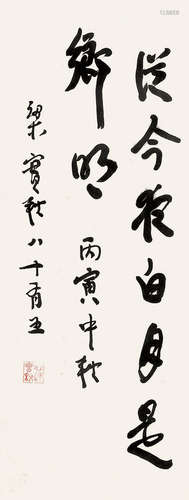 從今夜白月是
鄉明 丙寅中秋
梁實秋八十有五